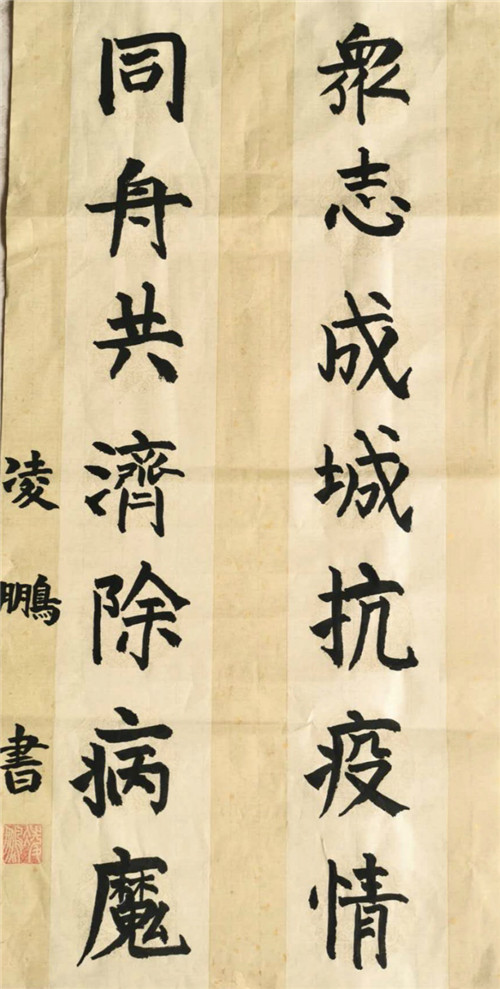 眾志成城抗疫情
同舟共濟除病魔
凌鵬書